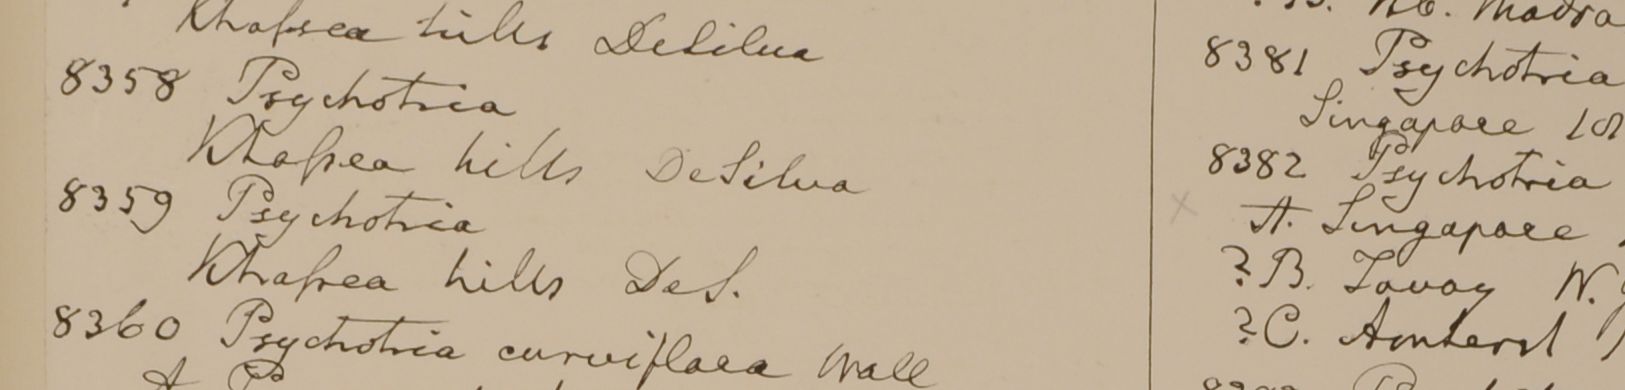 Khassea hills DeSilva
8358 Psychotria
Khassea hills DeSilva
8359 Psychotria
Khassea hills DeS.
8360 Psychotria curviflora Wall
A
B. Madra
8381 Psychotria
Singapore
8382 Psychotria
A. Singapore
?B. Tavoy W.
?C. Amherst